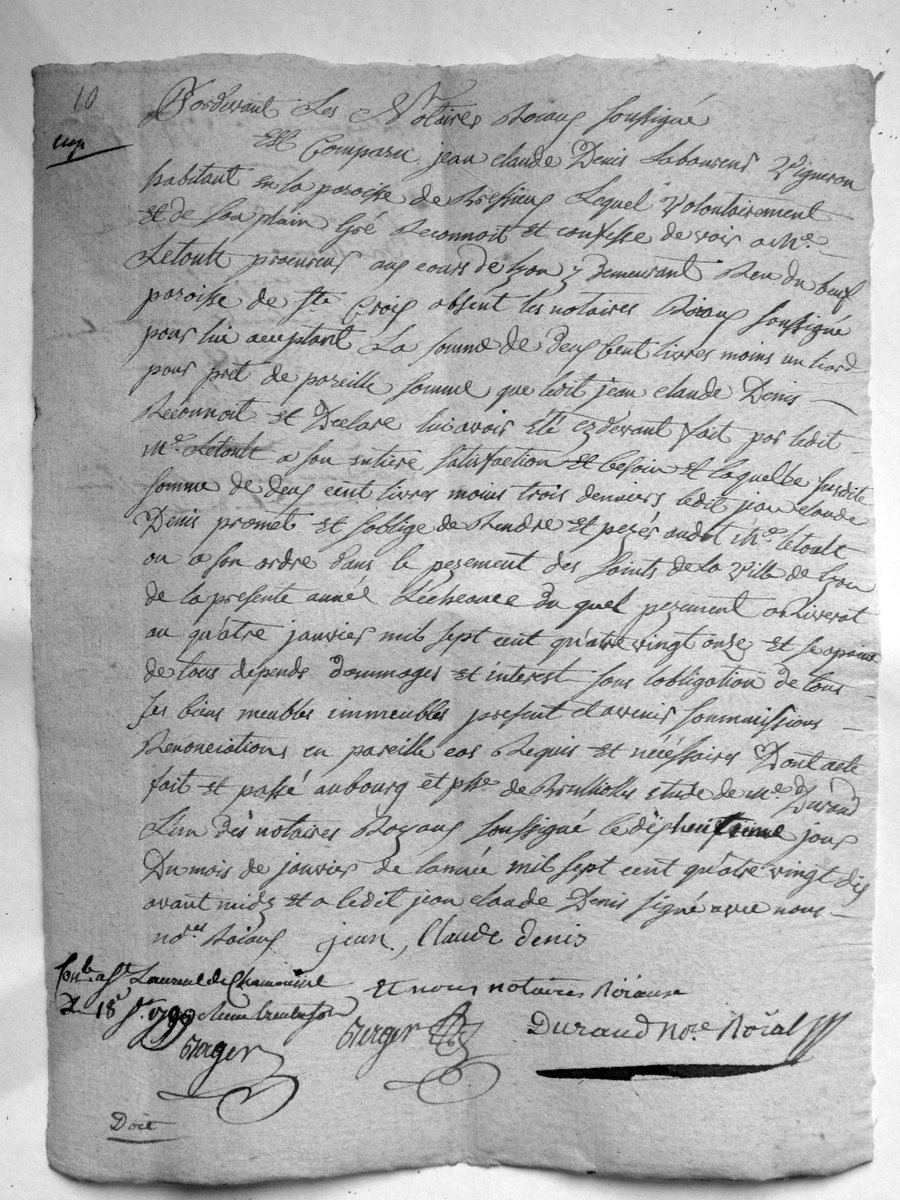 10
Pardevant Les Notaires Roiaux soussigné
Est Comparu jean claude Denis Laboureur Vigneron
habitant en la paroisse de Bressieux Lequel Volontairement
et de son plain Gré Reconnoit et confesse devoir a Me.
Letoult procureur aux cours de Lyon y demeurant Reu du beuf
paroisse de Ste Croix absent les notaires Roiaux soussigné
pour lui acceptant La somme de deux Cent livres moins un liard
pour pret de pareille somme que ledit jean claude Denis
Reconnoit et Declare lui avoir été cy devant fait par ledit
Me. Letoult a son entiere satisfaction et besoin et laquelle susdite
somme de deux cent livres moins trois deniers ledit jean claude
Denis promet et soblige de Rendre et peyer audit Me. letoult
ou a son ordre dans le peyement des saints de la Ville de Lyon
de la presente année Lecheance du quel peyement arriverat
au quatre janvier mil sept cent quatre vingt onze et se a peine
de tous depends dommages et interest sous lobligation de tous
ses biens meubles immeubles present et avenir sommissions
Renonciations en pareille cas Requis et nécessaires Dont acte
fait et passé au bourg et psse de Brullioles etude de Me. Durand
L'un des notaires Royaux soussigné le dix huitieme jour
Du mois de janvier de lannée mil sept cent quatre vingt dix
avant midy et a ledit jean claude Denis signé avec nous
nores Roiaux jean, Claude denis
Conle a St Laurent de Chamousset
Le 18 Jer 1790
et nous notaires Roiaux
Berger
Berger
Durand Nore Roial
Doit